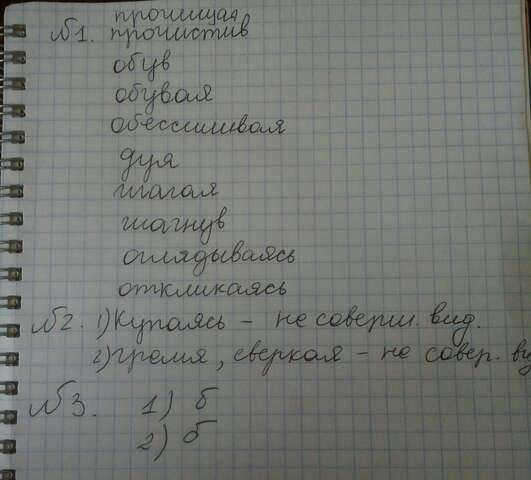 прочищая
№1. прочистив
обув
обувая
обессиливая
дуя
шагая
шагнув
оглядываясь
откликаясь
№2. 1) Купаясь – не соверш. вид.
2) гремя, сверкая – не совер. ви
№3. 1) б
2) б